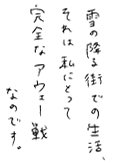 雪の降る街での生活、
それは私にとって
完全なアウェー戦
なのです。